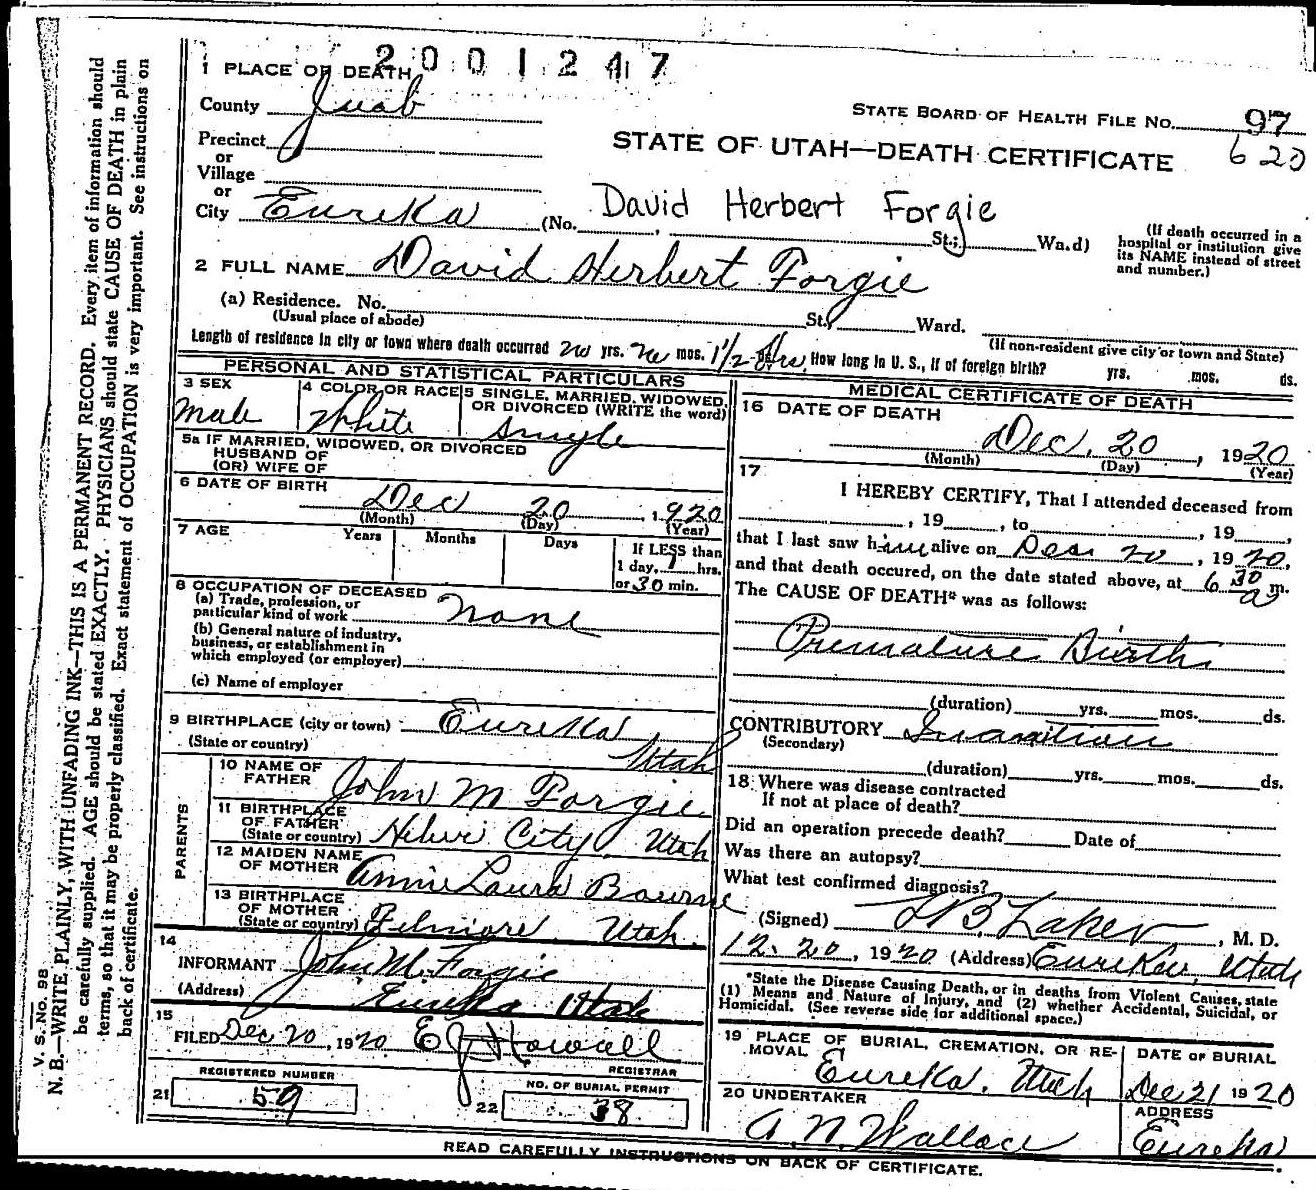 2001247
1 PLACE OF DEATH
County Juab
STATE BOARD OF HEALTH FILE NO. 97
620
Precinct
or
Village
or
STATE OF UTAH—DEATH CERTIFICATE
David Herbert Forgie
City Eureka (No. , St.; Wa.d)
(If death occurred in a
hospital or institution give
its NAME instead of street
and number.)
2 FULL NAME David Herbert Forgie
(a) Residence. No. St., Ward.
(Usual place of abode)
(If non-resident give city or town and State)
Length of residence in city or town where death occurred no yrs. no mos. 1 1/2 hrs. How long in U. S., if of foreign birth? yrs. mos. ds.
PERSONAL AND STATISTICAL PARTICULARS
3 SEX
Male
4 COLOR OR RACE
White
5 SINGLE, MARRIED, WIDOWED,
OR DIVORCED (WRITE the word)
Single
5a IF MARRIED, WIDOWED, OR DIVORCED
HUSBAND OF
(OR) WIFE OF
6 DATE OF BIRTH
Dec 20, 1920
(Month) (Day) (Year)
7 AGE Years Months Days
If LESS than
1 day, 1 hrs.
or 30 min.
8 OCCUPATION OF DECEASED
(a) Trade, profession, or
particular kind of work none
(b) General nature of industry,
business, or establishment in
which employed (or employer)
(c) Name of employer
9 BIRTHPLACE (city or town) Eureka
(State or country) Utah
PARENTS
10 NAME OF
FATHER John M Forgie
11 BIRTHPLACE
OF FATHER
(State or country) Heber City, Utah
12 MAIDEN NAME
OF MOTHER Annie Laura Bourne
13 BIRTHPLACE
OF MOTHER
(State or country) Filmore, Utah.
14
INFORMANT John M. Forgie
(Address) Eureka Utah
15
FILED Dec 20, 1920 E J Howell
REGISTRAR
REGISTERED NUMBER
21 59
NO. OF BURIAL PERMIT
22 38
MEDICAL CERTIFICATE OF DEATH
16 DATE OF DEATH
Dec. 20, 1920
(Month) (Day) (Year)
17
I HEREBY CERTIFY, That I attended deceased from
, 19 , to , 19 ,
that I last saw him alive on Dec 20, 1920,
and that death occured, on the date stated above, at 6 30 a m.
The CAUSE OF DEATH* was as follows:
Premature Birth
(duration) yrs. mos. ds.
CONTRIBUTORY Inanition
(Secondary)
(duration) yrs. mos. ds.
18 Where was disease contracted
If not at place of death?
Did an operation precede death? Date of
Was there an autopsy?
What test confirmed diagnosis?
(Signed) Laker, M. D.
12-20, 1920 (Address) Eureka, Utah
*State the Disease Causing Death, or in deaths from Violent Causes, state
(1) Means and Nature of Injury, and (2) whether Accidental, Suicidal, or
Homicidal. (See reverse side for additional space.)
19 PLACE OF BURIAL, CREMATION, OR RE-
MOVAL Eureka, Utah
DATE OF BURIAL
Dec 21 1920
20 UNDERTAKER
A. N. Wallace
ADDRESS
Eureka
READ CAREFULLY INSTRUCTIONS ON BACK OF CERTIFICATE.
V. S. No. 98
N. B.—WRITE PLAINLY, WITH UNFADING INK—THIS IS A PERMANENT RECORD. Every item of information should
be carefully supplied. AGE should be stated EXACTLY. PHYSICIANS should state CAUSE OF DEATH in plain
terms, so that it may be properly classified. Exact statement of OCCUPATION is very important. See instructions on
back of certificate.